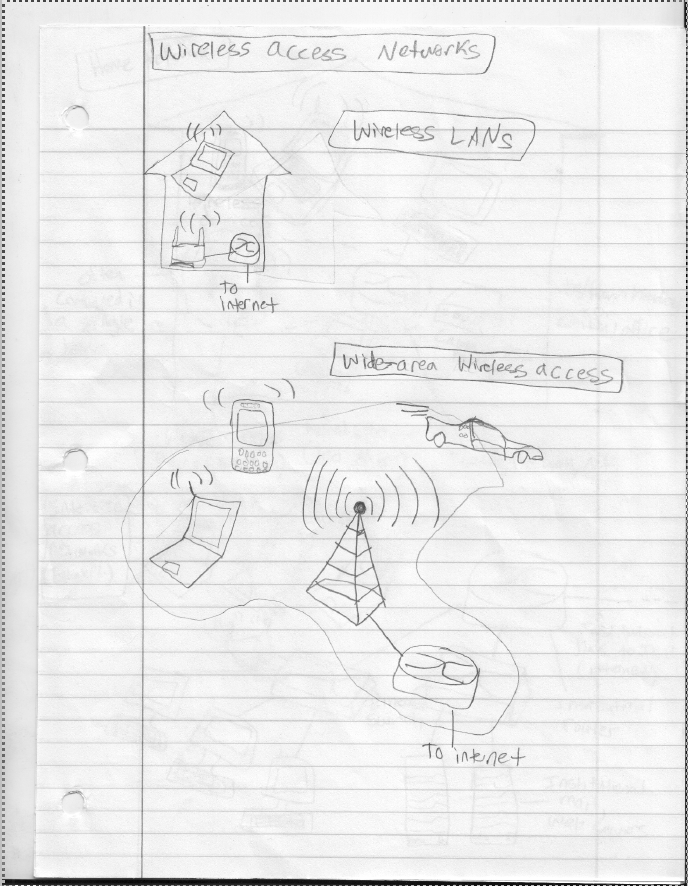 Wireless access Networks
Wireless LANs
To
internet
Wide-area Wireless access
To internet